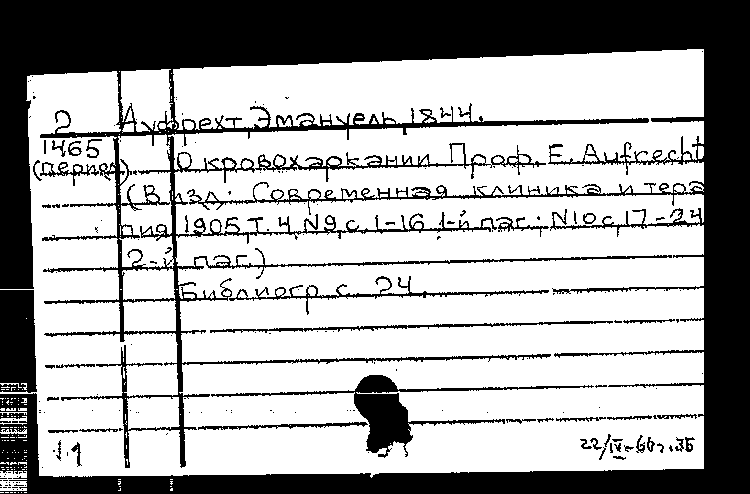 2 Ауфрехт, Эмануель, 1844.
1465 О кровохаркании. Проф. E. Aufrecht
(период) (В изд: Современная клиника и тера
пия 1905, Т. 4, N9, с. 1-16 1-й паг.; N10 с, 17-24
2-й паг.)
Библиогр с. 24.
1.1 22/IV-66г.